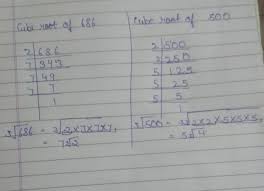 Cube root of 686
2 | 686
7 | 343
7 | 49
7 | 7
1
∛686 = ∛2×7×7×7
= 7∛2
Cube root of 500
2 | 500
2 | 250
5 | 125
5 | 25
5 | 5
1
∛500 = ∛2×2×5×5×5
= 5∛4